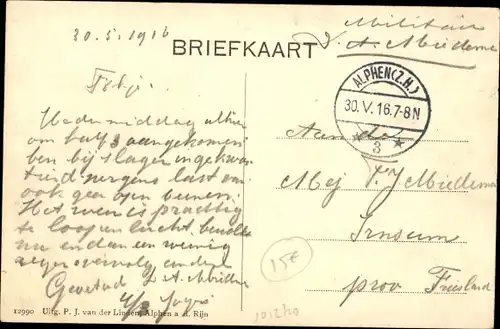 30.5.1916
Militair
BRIEFKAART
v. A. Miedema
ALPHEN (Z.H.)
30.V.16.7-8N
3
Heden middag alhier
om half 3 aangekomen
ben bij slager ingekwar
tierd nergens last van
ook geen open beenen.
Het weer is prachtig
te loopen lucht bewolkt
nu en dan een weinig
regen
A. Miedema
Aan de
Mej T. J. Miedema
Irnsum
prov Friesland
15€
12990 Uitg. P. J. van der Linden, Alphen a. d. Rijn